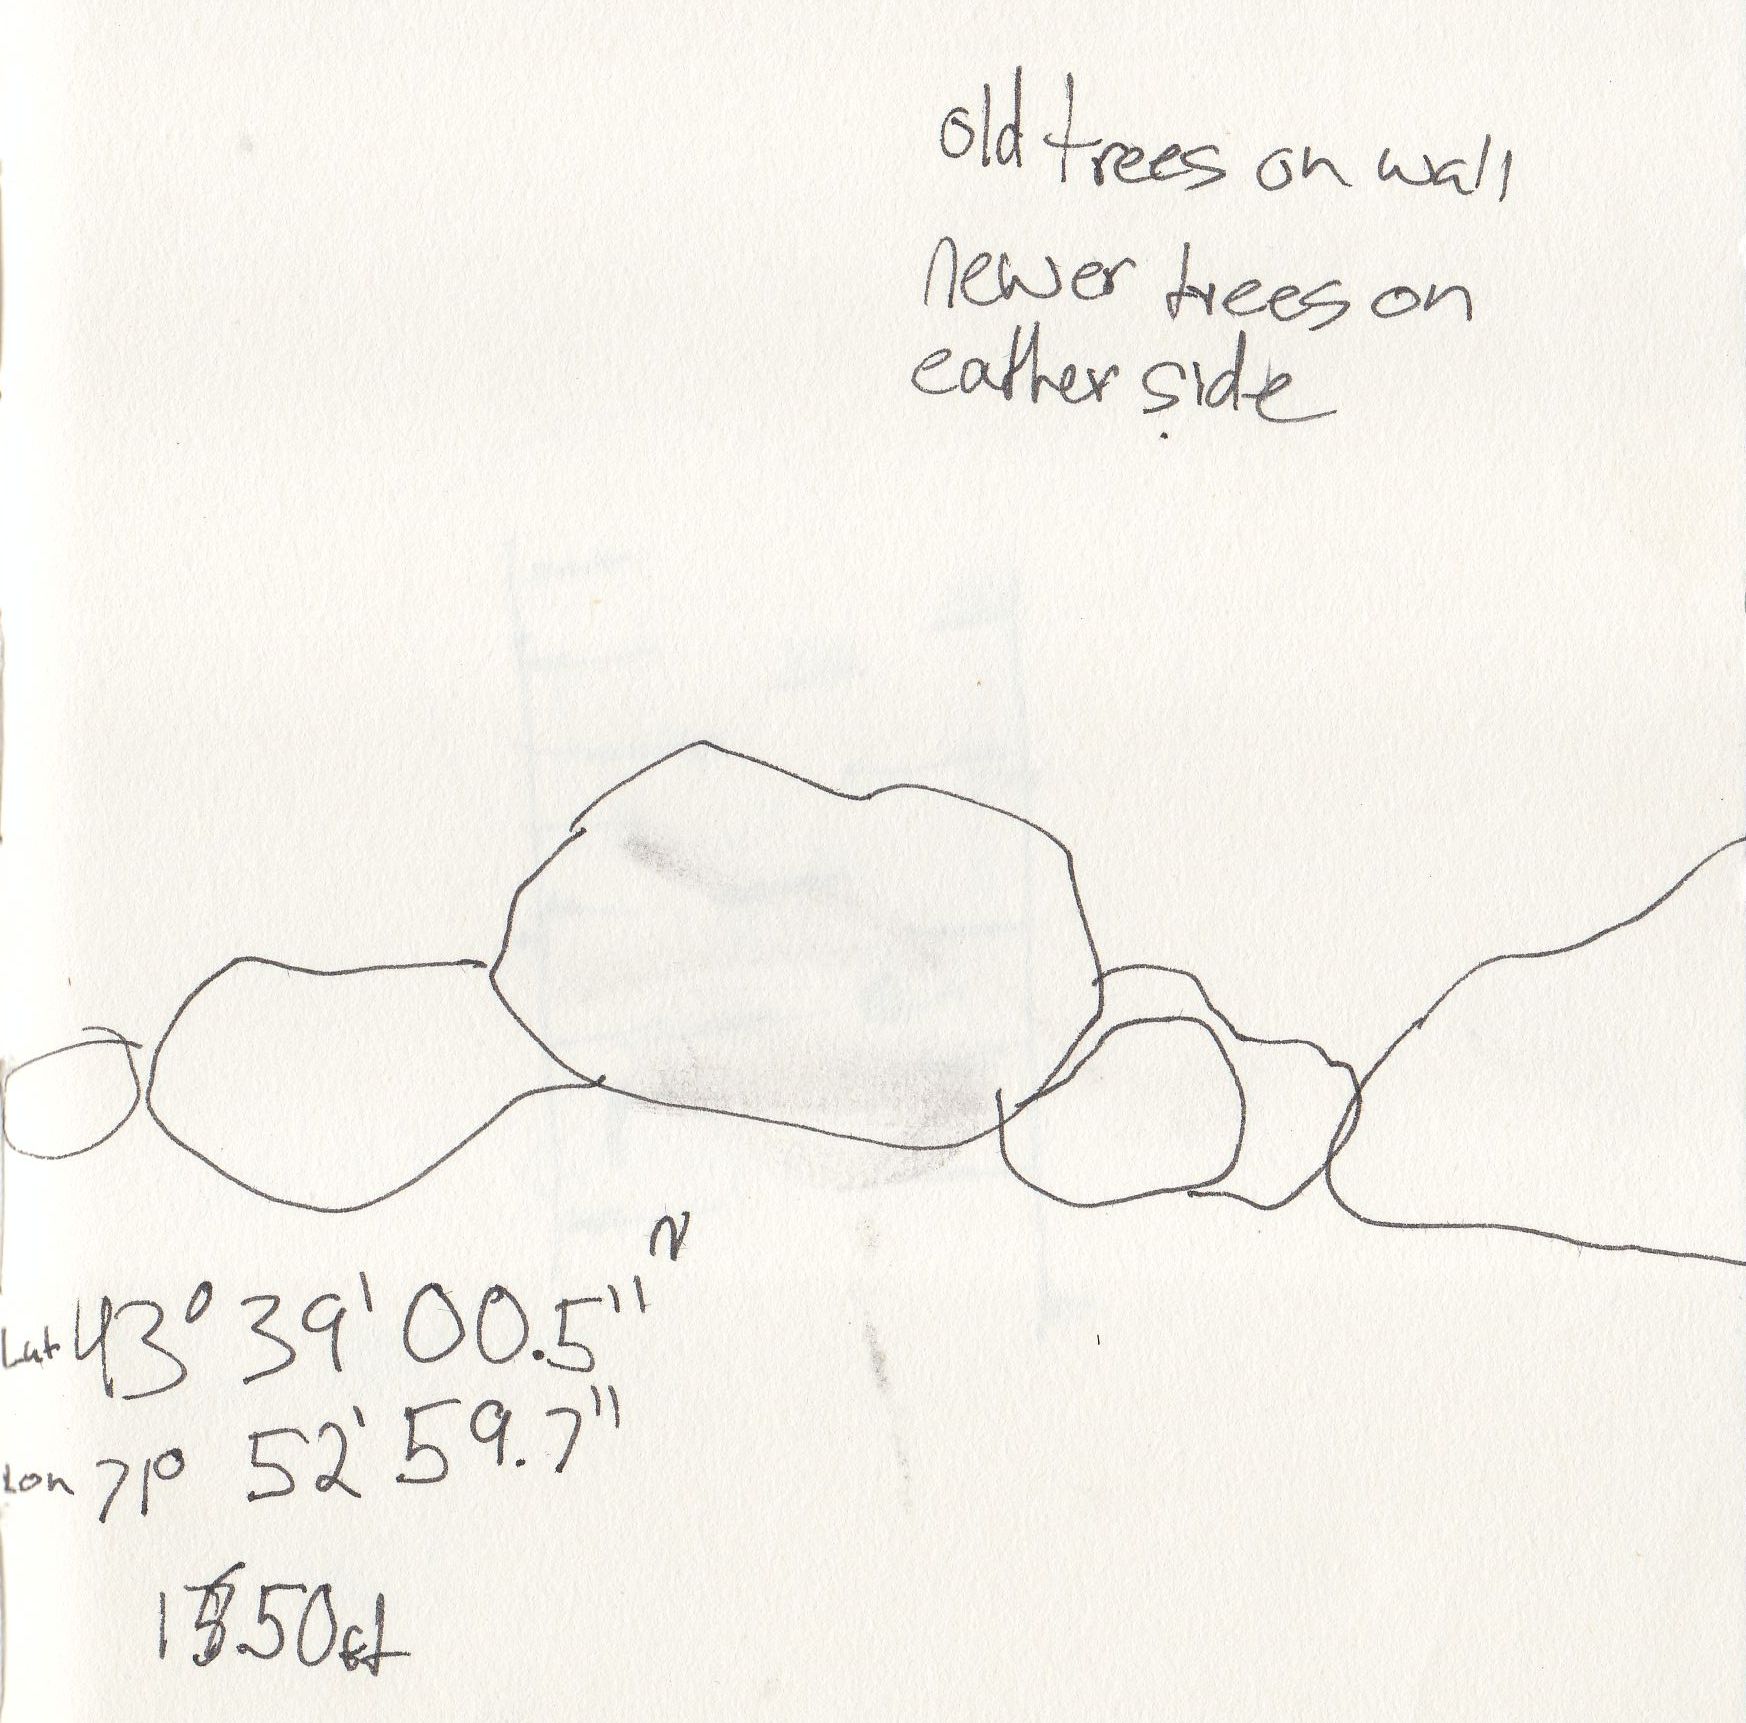 old trees on wall
newer trees on
eather side
N
Lat 43° 39' 00.5"
Lon 71° 52' 59.7"